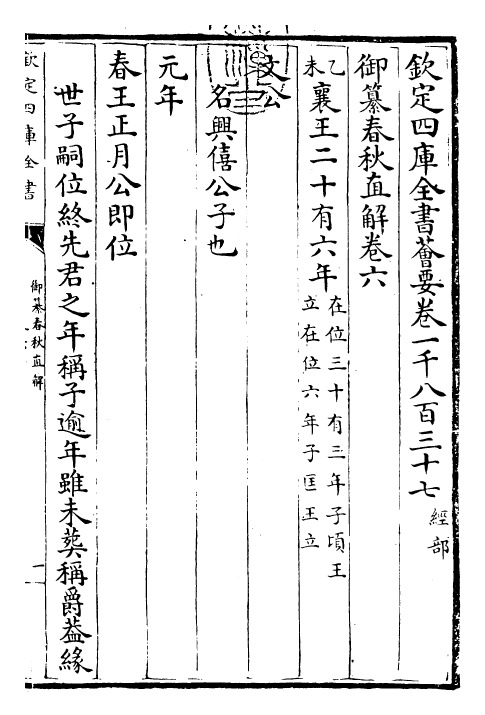 欽定四庫全書薈要卷一千八百三十七 經部
御纂春秋直解卷六
乙未 襄王二十有六年 在位三十有三年子頃王立在位六年子匡王立
文公
名興僖公子也
元年
春王正月公即位
世子嗣位終先君之年稱子逾年雖未葬稱爵葢緣
欽定四庫全書
御纂春秋直解
一